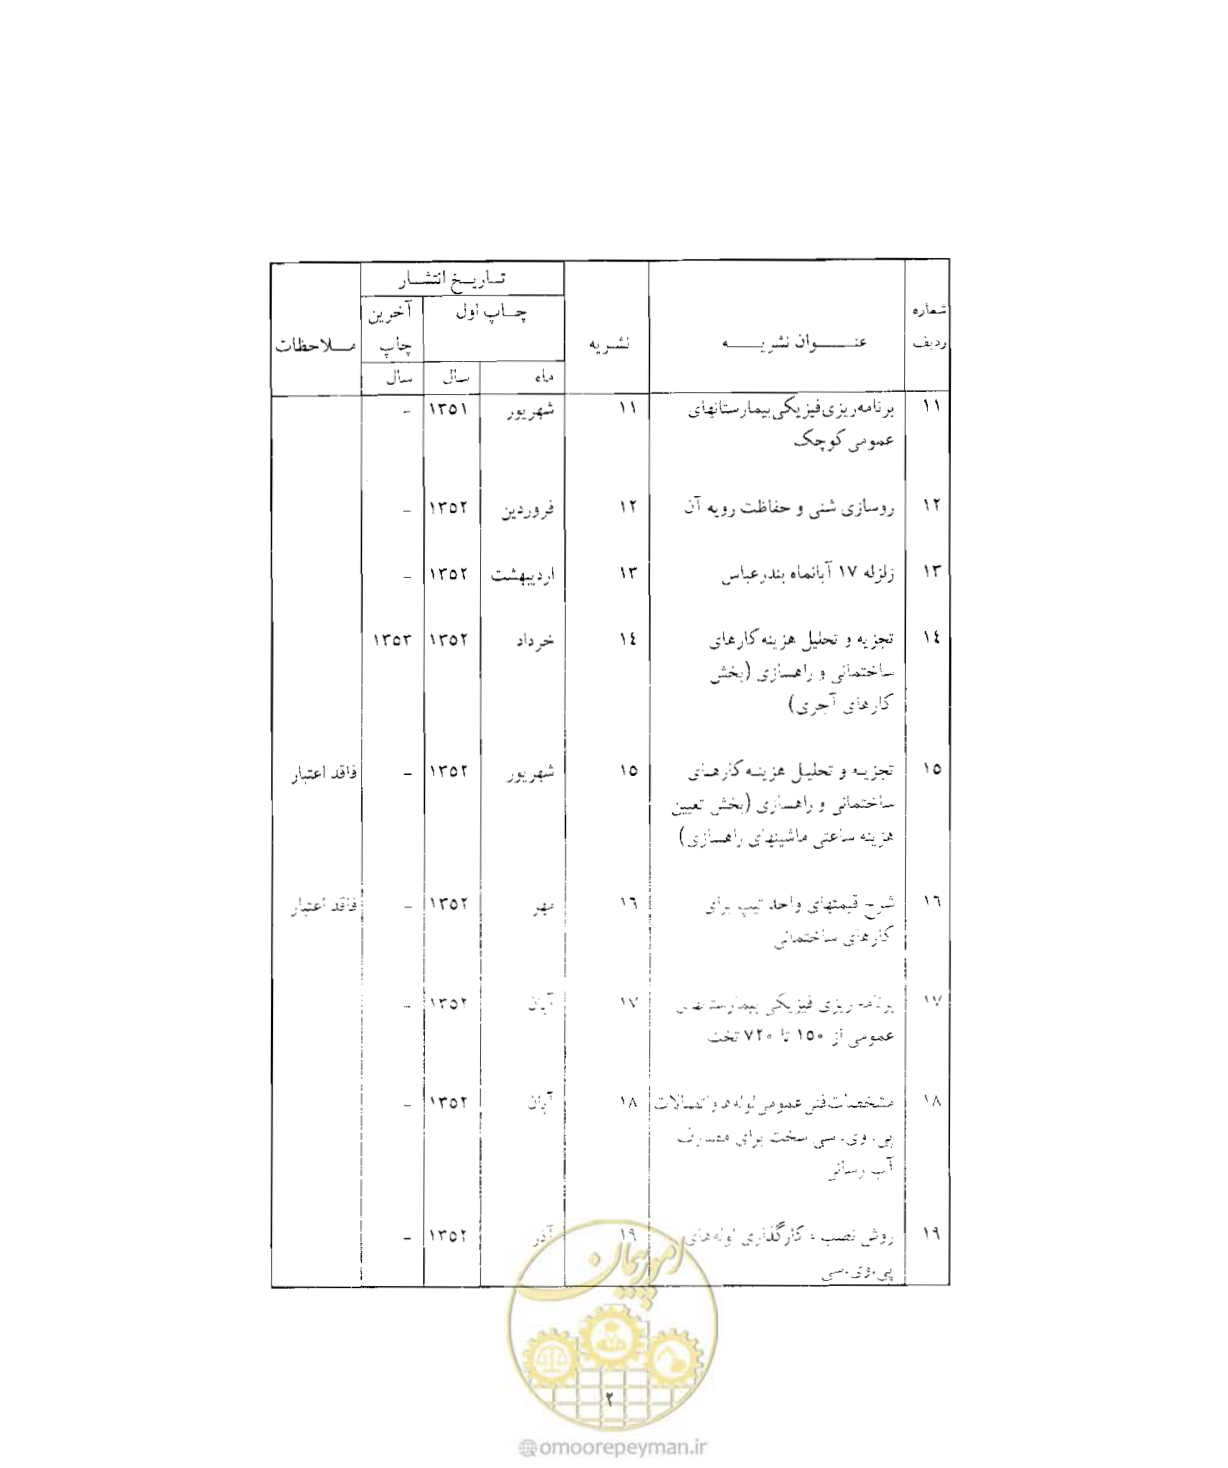 تاریخ انتشار
شماره ردیف
عنوان نشریه
نشریه
چاپ اول
آخرین چاپ
ملاحظات
ماه
سال
سال
۱۱ برنامه‌ریزی فیزیکی بیمارستانهای ۱۱ شهریور ۱۳۵۱ -
عمومی کوچک
۱۲ روسازی شنی و حفاظت رویه آن ۱۲ فروردین ۱۳۵۲ -
۱۳ زلزله ۱۷ آبانماه بندرعباس ۱۳ اردیبهشت ۱۳۵۲ -
۱۴ تجزیه و تحلیل هزینه کارهای ۱۴ خرداد ۱۳۵۲ ۱۳۵۳
ساختمانی و راهسازی (بخش
کارهای آجری)
۱۵ تجزیه و تحلیل هزینه کارهای ۱۵ شهریور ۱۳۵۲ - فاقد اعتبار
ساختمانی و راهسازی (بخش تعیین
هزینه ساعتی ماشینهای راهسازی)
۱۶ شرح قیمتهای واحد تیپ برای ۱۶ مهر ۱۳۵۲ - فاقد اعتبار
کارهای ساختمانی
۱۷ برنامه‌ریزی فیزیکی بیمارستانهای ۱۷ آبان ۱۳۵۲ -
عمومی از ۱۵۰ تا ۷۲۰ تخت
۱۸ مشخصات فنی عمومی لوله‌ها و اتصالات ۱۸ آبان ۱۳۵۲ -
پی. وی. سی سخت برای مصارف
آب رسانی
۱۹ روش نصب و کارگذاری لوله‌های ۱۹ آذر ۱۳۵۲ -
پی.وی.سی
امور پیمان
۲
omoorepeyman.ir